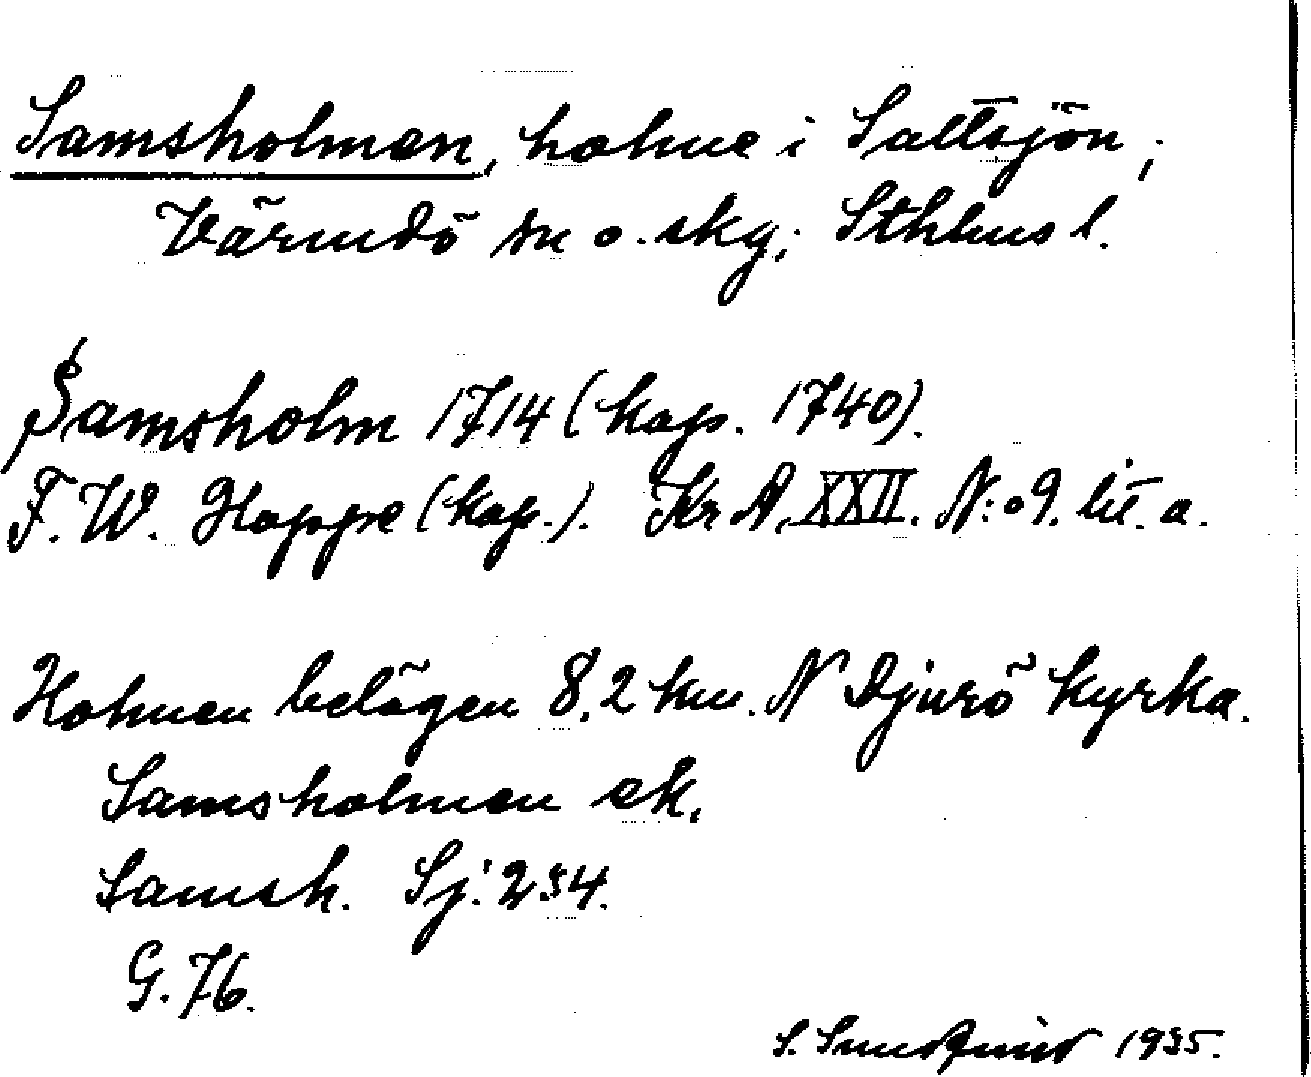 Samsholmen, holme i Saltsjön,
Värmdö sn o. skg; Sthlms l.
Samsholm 1714 (kop. 1740).
F. W. Hoppe (kop.). Kr A. XXII. N:o 9. lit. a.
Holmen belägen 8,2 km. N Djurö kyrka.
Samsholmen ek.
Samsh. Sj: 234.
G. 76.
S. 1935.